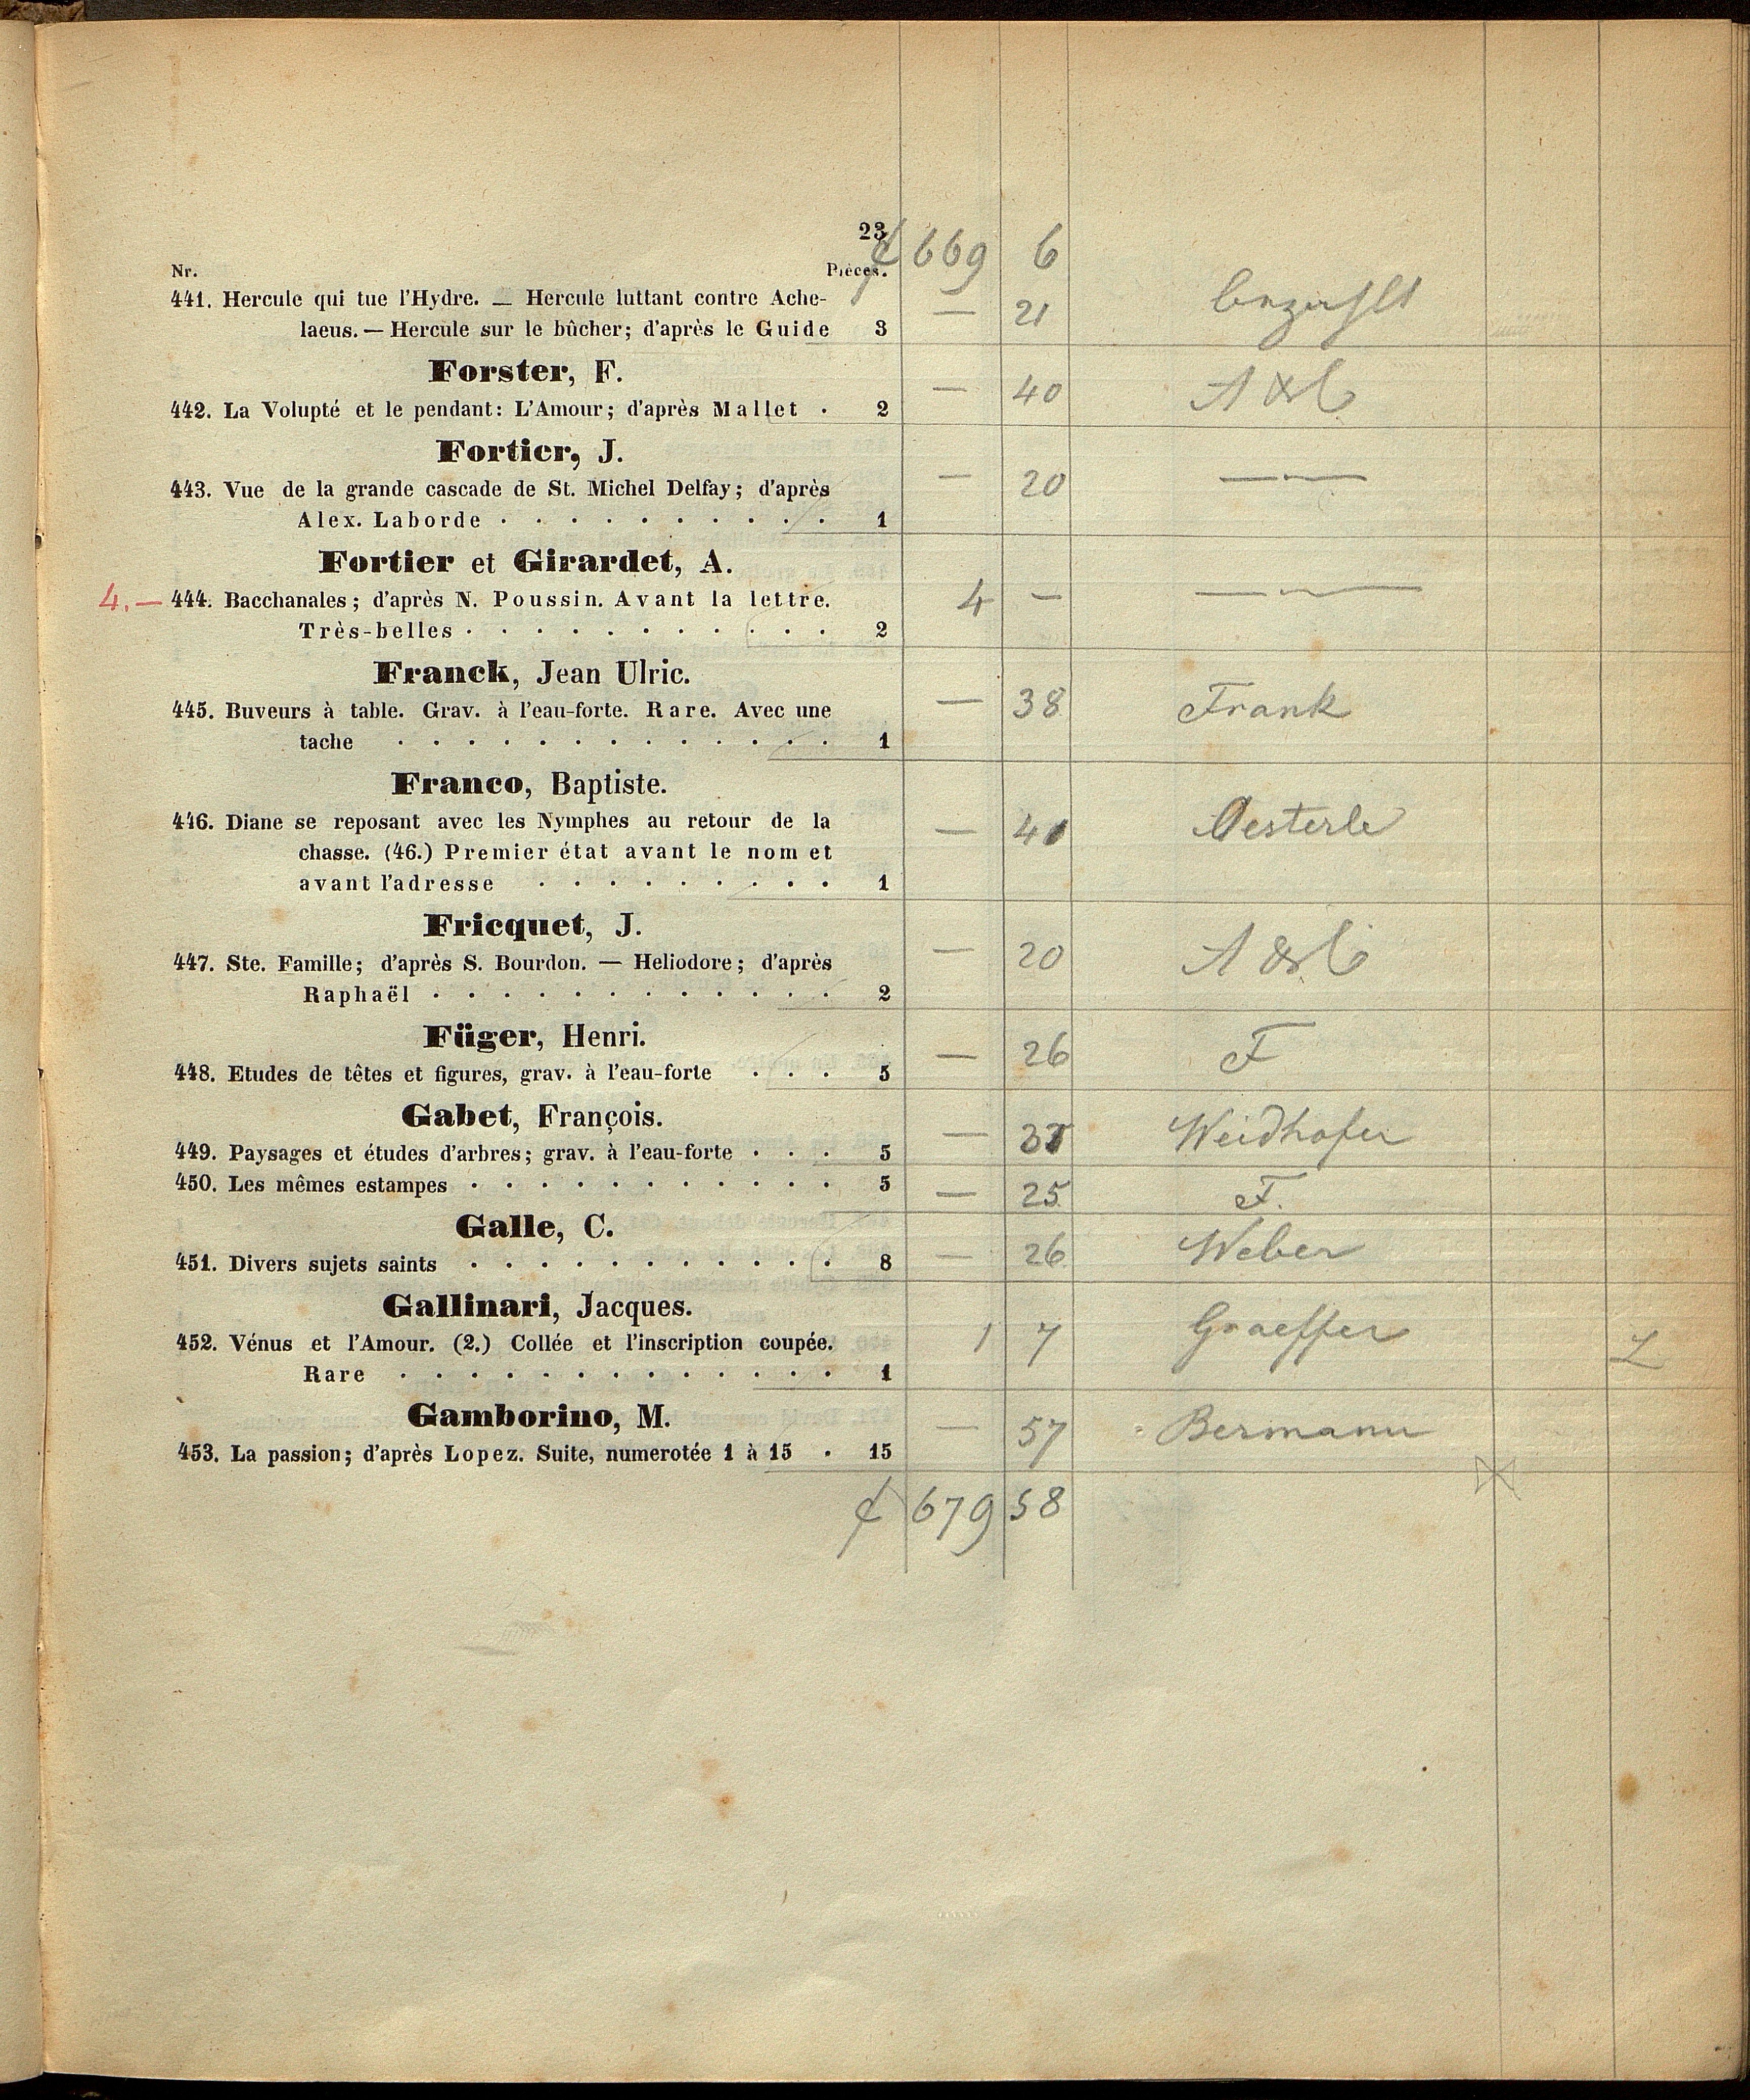 23
₰ 669 6
Nr. Pièces.
441. Hercule qui tue l'Hydre. — Hercule luttant contre Ache-
laeus. — Hercule sur le bûcher; d'après le Guide 3 — 21
Forster, F.
442. La Volupté et le pendant: L'Amour; d'après Mallet . 2 — 40 A & C
Fortier, J.
443. Vue de la grande cascade de St. Michel Delfay; d'après — 20 —
Alex. Laborde . . . . . . . . . . 1
Fortier et Girardet, A.
4.— 444. Bacchanales; d'après N. Poussin. Avant la lettre. 4 — —
Très-belles . . . . . . . . . . . 2
Franck, Jean Ulric.
445. Buveurs à table. Grav. à l'eau-forte. Rare. Avec une — 38 Frank
tache . . . . . . . . . . . . . 1
Franco, Baptiste.
446. Diane se reposant avec les Nymphes au retour de la — 41 Oesterle
chasse. (46.) Premier état avant le nom et
avant l'adresse . . . . . . . . . 1
Fricquet, J.
447. Ste. Famille; d'après S. Bourdon. — Heliodore; d'après — 20 A & C
Raphaël . . . . . . . . . . . . 2
Füger, Henri.
448. Etudes de têtes et figures, grav. à l'eau-forte . . . 5 — 26 F
Gabet, François.
449. Paysages et études d'arbres; grav. à l'eau-forte . . . 5 — Weidhofer
450. Les mêmes estampes . . . . . . . . . . . 5 — 25 F.
Galle, C.
451. Divers sujets saints . . . . . . . . . . . 8 — 26 Weber
Gallinari, Jacques.
452. Vénus et l'Amour. (2.) Collée et l'inscription coupée. 1 7 Graeffer
Rare . . . . . . . . . . . . . 1
Gamborino, M.
453. La passion; d'après Lopez. Suite, numerotée 1 à 15 . 15 — 57 Bermann
₰ 679 58